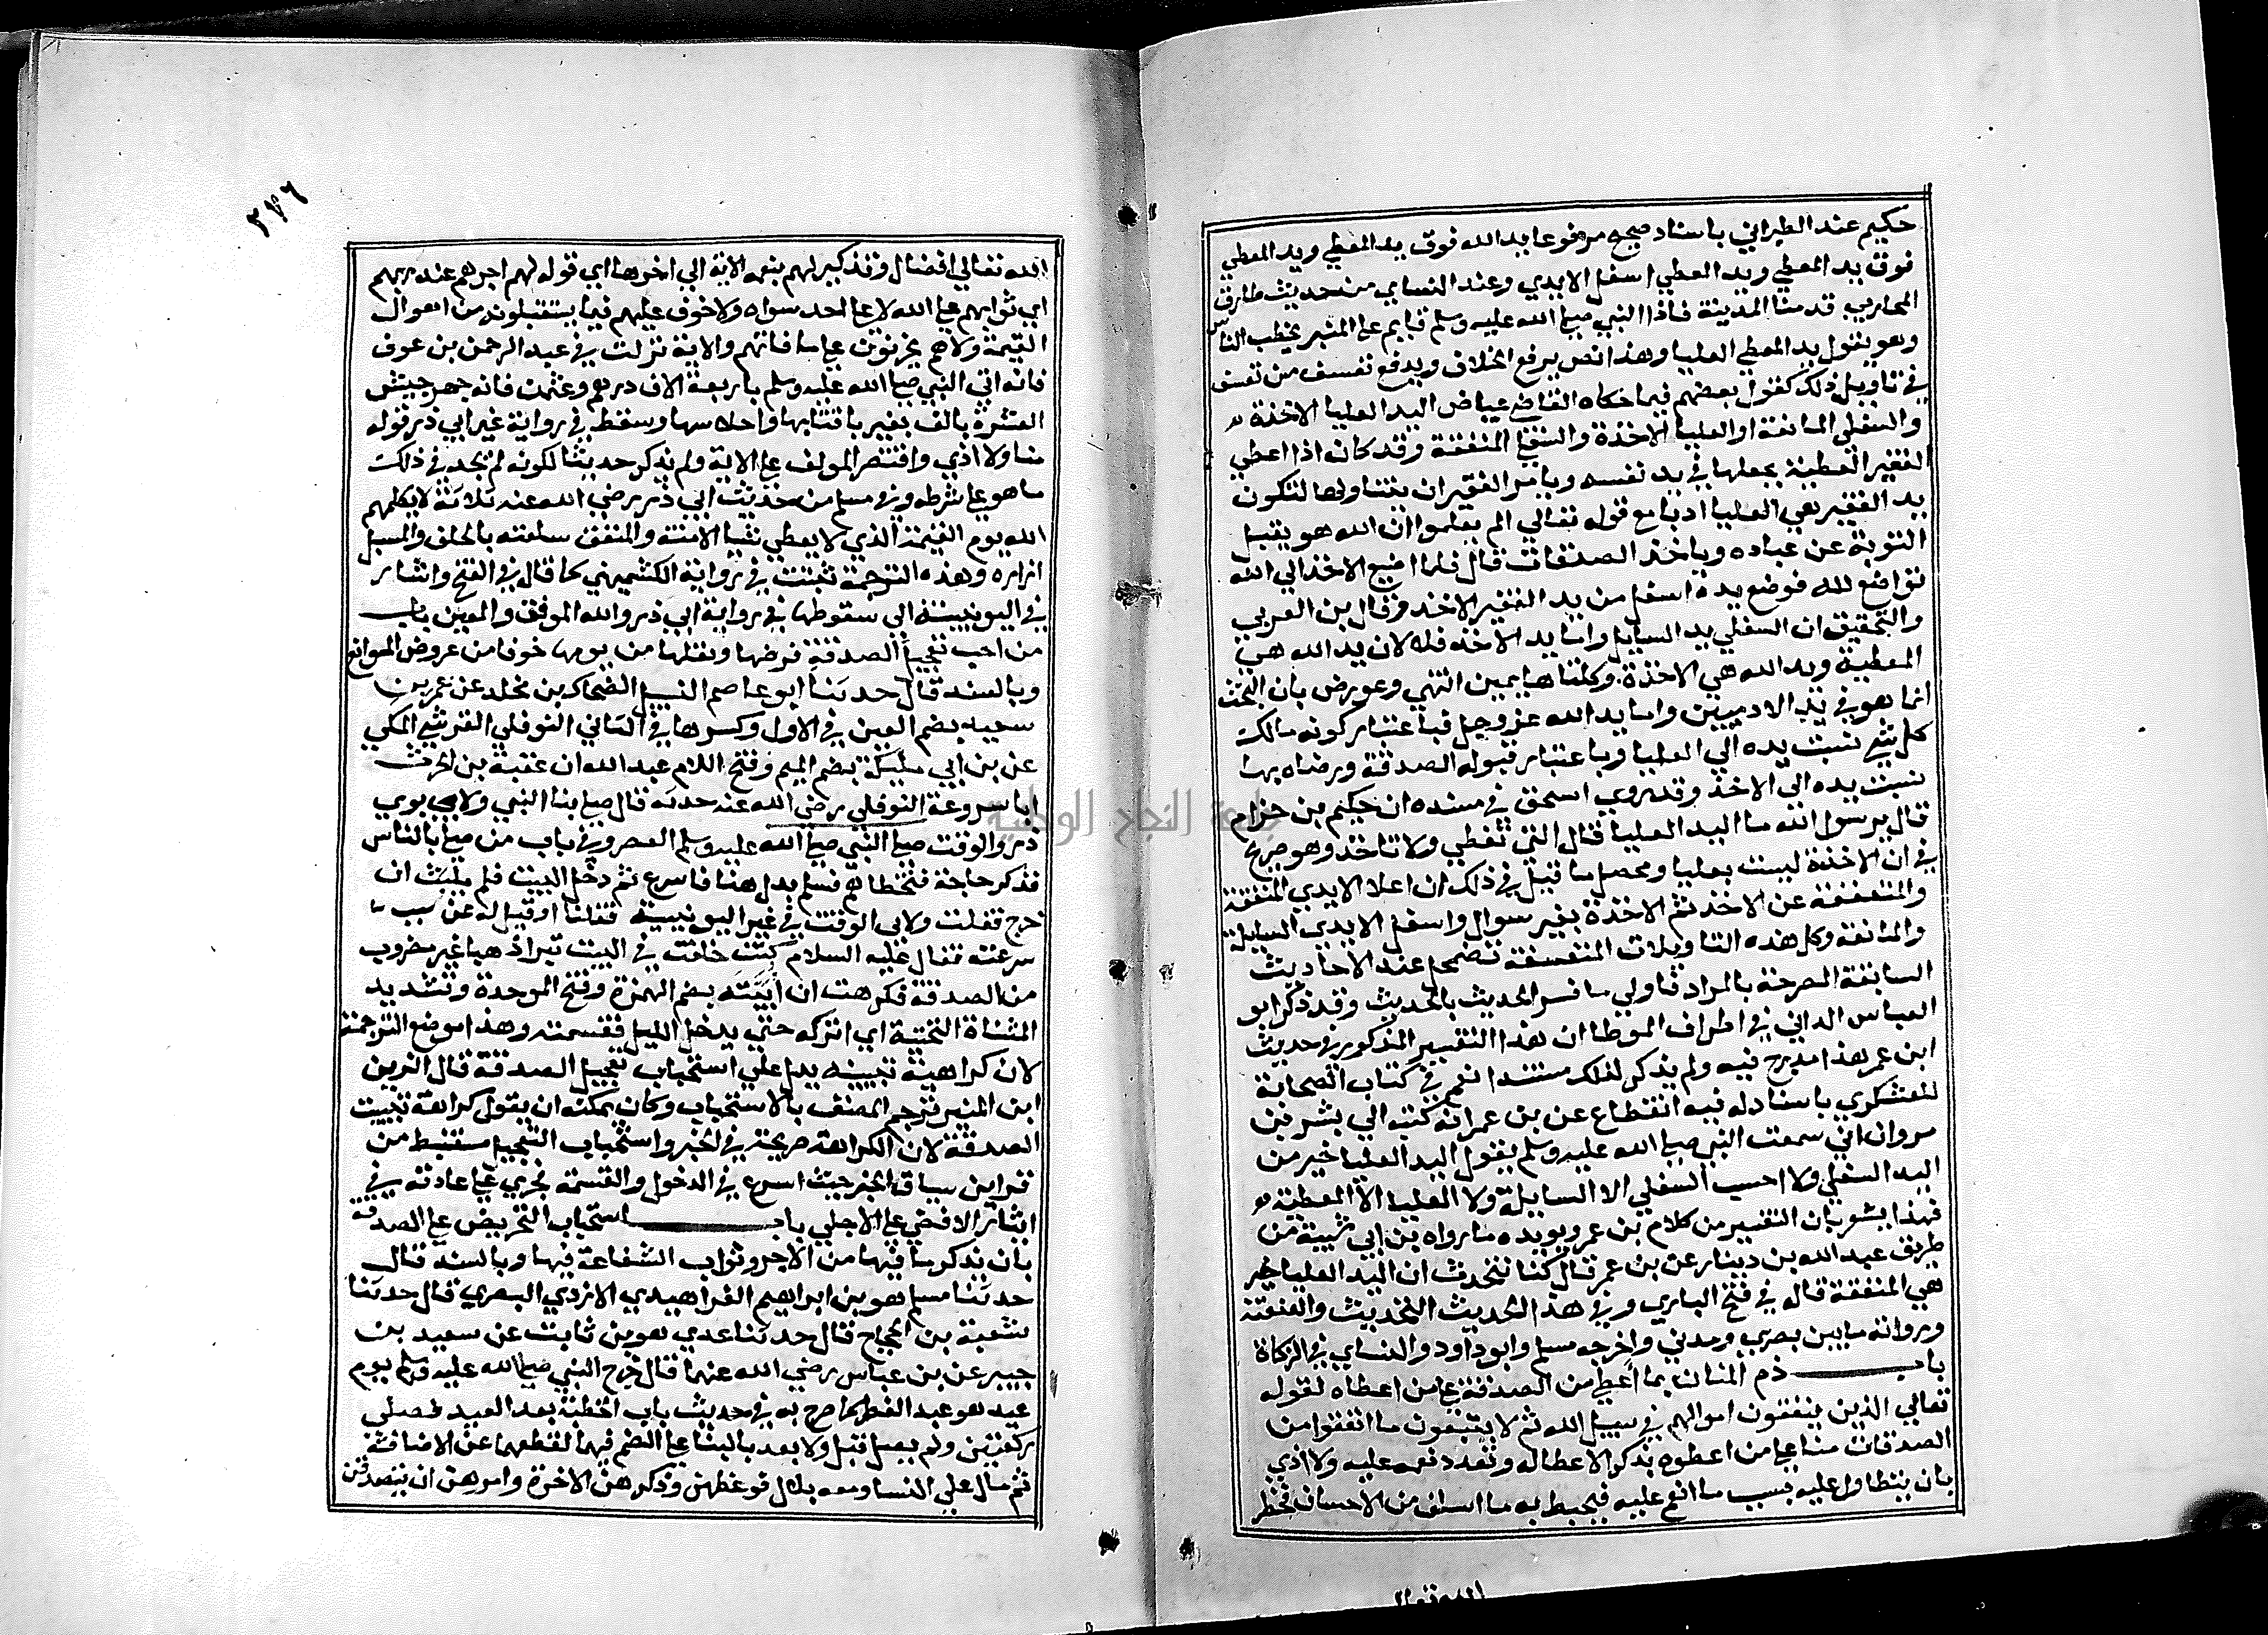 حكيم عند الطبراني باسناد صحيح مرفوعا يد الله فوق يد المعطي ويد المعطي
فوق يد المعطي ويد المعطي اسفل الايدي وعند النساي من حديث طارق
المحاربي قدمنا المدينة فاذا النبي صلى الله عليه وسلم قايم على المنبر يخطب الناس
وهو يقول يد المعطي العليا وهذا نص يرفع الخلاف ويدفع تعسف من تعسف
في تاويل ذلك كقول بعضهم فيما حكاه القاضي عياض اليد العليا الاخذة
والسفلي المانعة او العليا الاخذة والسفلى المنفقة وقد كان اذا اعطي
الفقير العطية يجعلها في يد نفسه ويامر الفقير ان يتناولها لتكون
يد الفقير هي العليا ادبا مع قوله تعالي الم يعلموا ان الله هو يقبل
التوبة عن عباده وياخذ الصدقات قال فلما اضيع الاخذ الي الله
تواضع لله فوضع يده اسفل من يد الفقير الاخذ وقال بن العربي
والتحقيق ان السفلي يد السايل واما يد الاخذ فلا لان يد الله هي
المعطية ويد الله هي الاخذة وكلتاهما يمين انتهي وعورض بان البحث
انما هو في يد الادميين واما يد الله عز وجل فباعتبار كونه مالك
كل شي نسبت يده الي العليا وباعتبار قبوله الصدقة ورضاه بها
نسبت يده الى الاخذ وقد روي اسحق في مسنده ان حكيم بن حزام
قال يرسول الله ما اليد العليا قال التي تعطي ولا تاخذ وهو صريح
في ان الاخذة ليست بعليا ومحصل ما قيل في ذلك ان اعلا الايدي المنفقة
والمتعففة عن الاخذ ثم الاخذة بغير سوال واسفل الايدي السايلة
والمانعة وكل هذه التاويلات المتعسفة تضمحل عند الاحاديث
السابقة المصرحة بالمراد فاولي ما فسر الحديث بالحديث وقد ذكر ابو
العباس الداني في اطراف الموطا ان هذا التفسير المذكور في حديث
ابن عمر هذا مدرج فيه ولم يذكر لذلك مستندا نعم في كتاب الصحابة
للعسكري باسناد له فيه انقطاع عن بن عمر انه كتب الي بشر بن
مروان اني سمعت النبي صلى الله عليه وسلم يقول اليد العليا خير من
اليد السفلي ولا احسب السفلي الا السايلة ولا العليا الا المعطية
فهذا يشعر بان التفسير من كلام بن عمر ويويده ما رواه بن ابي شيبة من
طريق عبد الله بن دينار عن بن عمر قال كنا نتحدث ان اليد العليا خير
هي المنفقة قاله في فتح الباري وفي هذا الحديث التحديث والعنعنة
ورواته ما بين بصري ومدني واخرجه مسلم وابو داود والنساي في الزكاة
باب ذم المنان بما اعطي من الصدقة على من اعطاه لقوله
تعالي الذين ينفقون اموالهم في سبيل الله ثم لا يتبعون ما انفقوا من
الصدقات منا على من اعطوه بذكر الاعطا له وتعدد نعمه عليه ولا اذي
بان يتطاول عليه بسبب ما انعم عليه فيحبط به ما اسلف من الاحسان فحظر
الله تعالي
٢٧٦
الله تعالي افضال وتذكير لهم بنعمه الاية الي اخرها اي قوله لهم اجرهم عند ربهم
اي ثوابهم على الله لا على احد سواه ولا خوف عليهم فيما يستقبلونه من اهوال
القيمة ولا هم يحزنون على ما فاتهم والاية نزلت في عبد الرحمن بن عوف
فانه اتي النبي صلى الله عليه وسلم باربعة الاف درهم وعثمن فانه جهز جيش
العسرة بالف بعير باقتابها واحلاسها وسقط في رواية غير ابي ذر قوله
منا ولا اذي واقتصر المولف على الاية ولم يذكر حديثا لكونه لم يجد في ذلك
ما هو على شرطه وفي مسلم من حديث ابي ذر رضي الله عنه ثلاثة لا يكلمهم
الله يوم القيمة الذي لا يعطي شيا الا منة والمنفق سلعته بالحلف والمسبل
ازاره وهذه الترجمة ثبتت في رواية الكشميهني كما قال في الفتح واشار
في اليونينية الى سقوطها في رواية ابي ذر والله الموفق والمعين باب
من احب تعجيل الصدقة فرضها ونفلها من يومها خوفا من عروض الموانع
وبالسند قال حدثنا ابو عاصم النبيل الضحاك بن مخلد عن عمر بن
سعيد بضم العين في الاول وكسرها في الثاني النوفلي القرشي المكي
عن بن ابي مليكة بضم الميم وفتح اللام عبد الله ان عقبة بن الحرث
ابا سروعة النوفلي رضي الله عنه حدثه قال صلى بنا النبي ولابوي
ذر والوقت صلى النبي صلى الله عليه وسلم العصر وفي باب من صلى بالناس
فذكر حاجة فتخطاهم فسلم بدل هنا فاسرع ثم دخل البيت فلم يلبث ان
خرج فقلت ولابي الوقت في غير اليونينية فقلنا او قيل له عن سبب
سرعته فقال عليه السلام كنت خلفت في البيت تبرا ذهبا غير مضروب
من الصدقة فكرهت ان ابيته بضم الهمزة وفتح الموحدة وتشديد
المثناة التحتية اي اتركه حتي يدخل الليل فقسمته وهذا موضع الترجمة
لان كراهية تبييته يدل علي استحباب تعجيل الصدقة قال الزين
ابن المنير ترجم المصنف بالاستحباب وكان يمكنه ان يقول كراهة تبييت
الصدقة لان الكراهة صريحة في الخبر واستحباب التعجيل مستنبط من
قراين سياق الخبر حيث اسرع في الدخول والقسمة فجري على عادته في
ايثار الاخفي على الاجلي باب استحباب التحريض على الصدقة
بان يذكر ما فيها من الاجر وثواب الشفاعة فيها وبالسند قال
حدثنا مسلم هو بن ابراهيم الفراهيدي الازدي البصري قال حدثنا
شعبة بن الحجاج قال حدثنا عدي هو بن ثابت عن سعيد بن
جبير عن بن عباس رضي الله عنهما قال خرج النبي صلى الله عليه وسلم يوم
عيد هو عيد الفطر كما صرح به في حديث باب الخطبة بعد العيد فصلي
ركعتين ولم يصل قبل ولا بعد بالبنا على الضم فيهما لقطعهما عن الاضافة
ثم مال علي النسا ومعه بلال فوعظهن وذكرهن الاخرة وامرهن ان يتصدقن
جامعة النجاح الوطنية